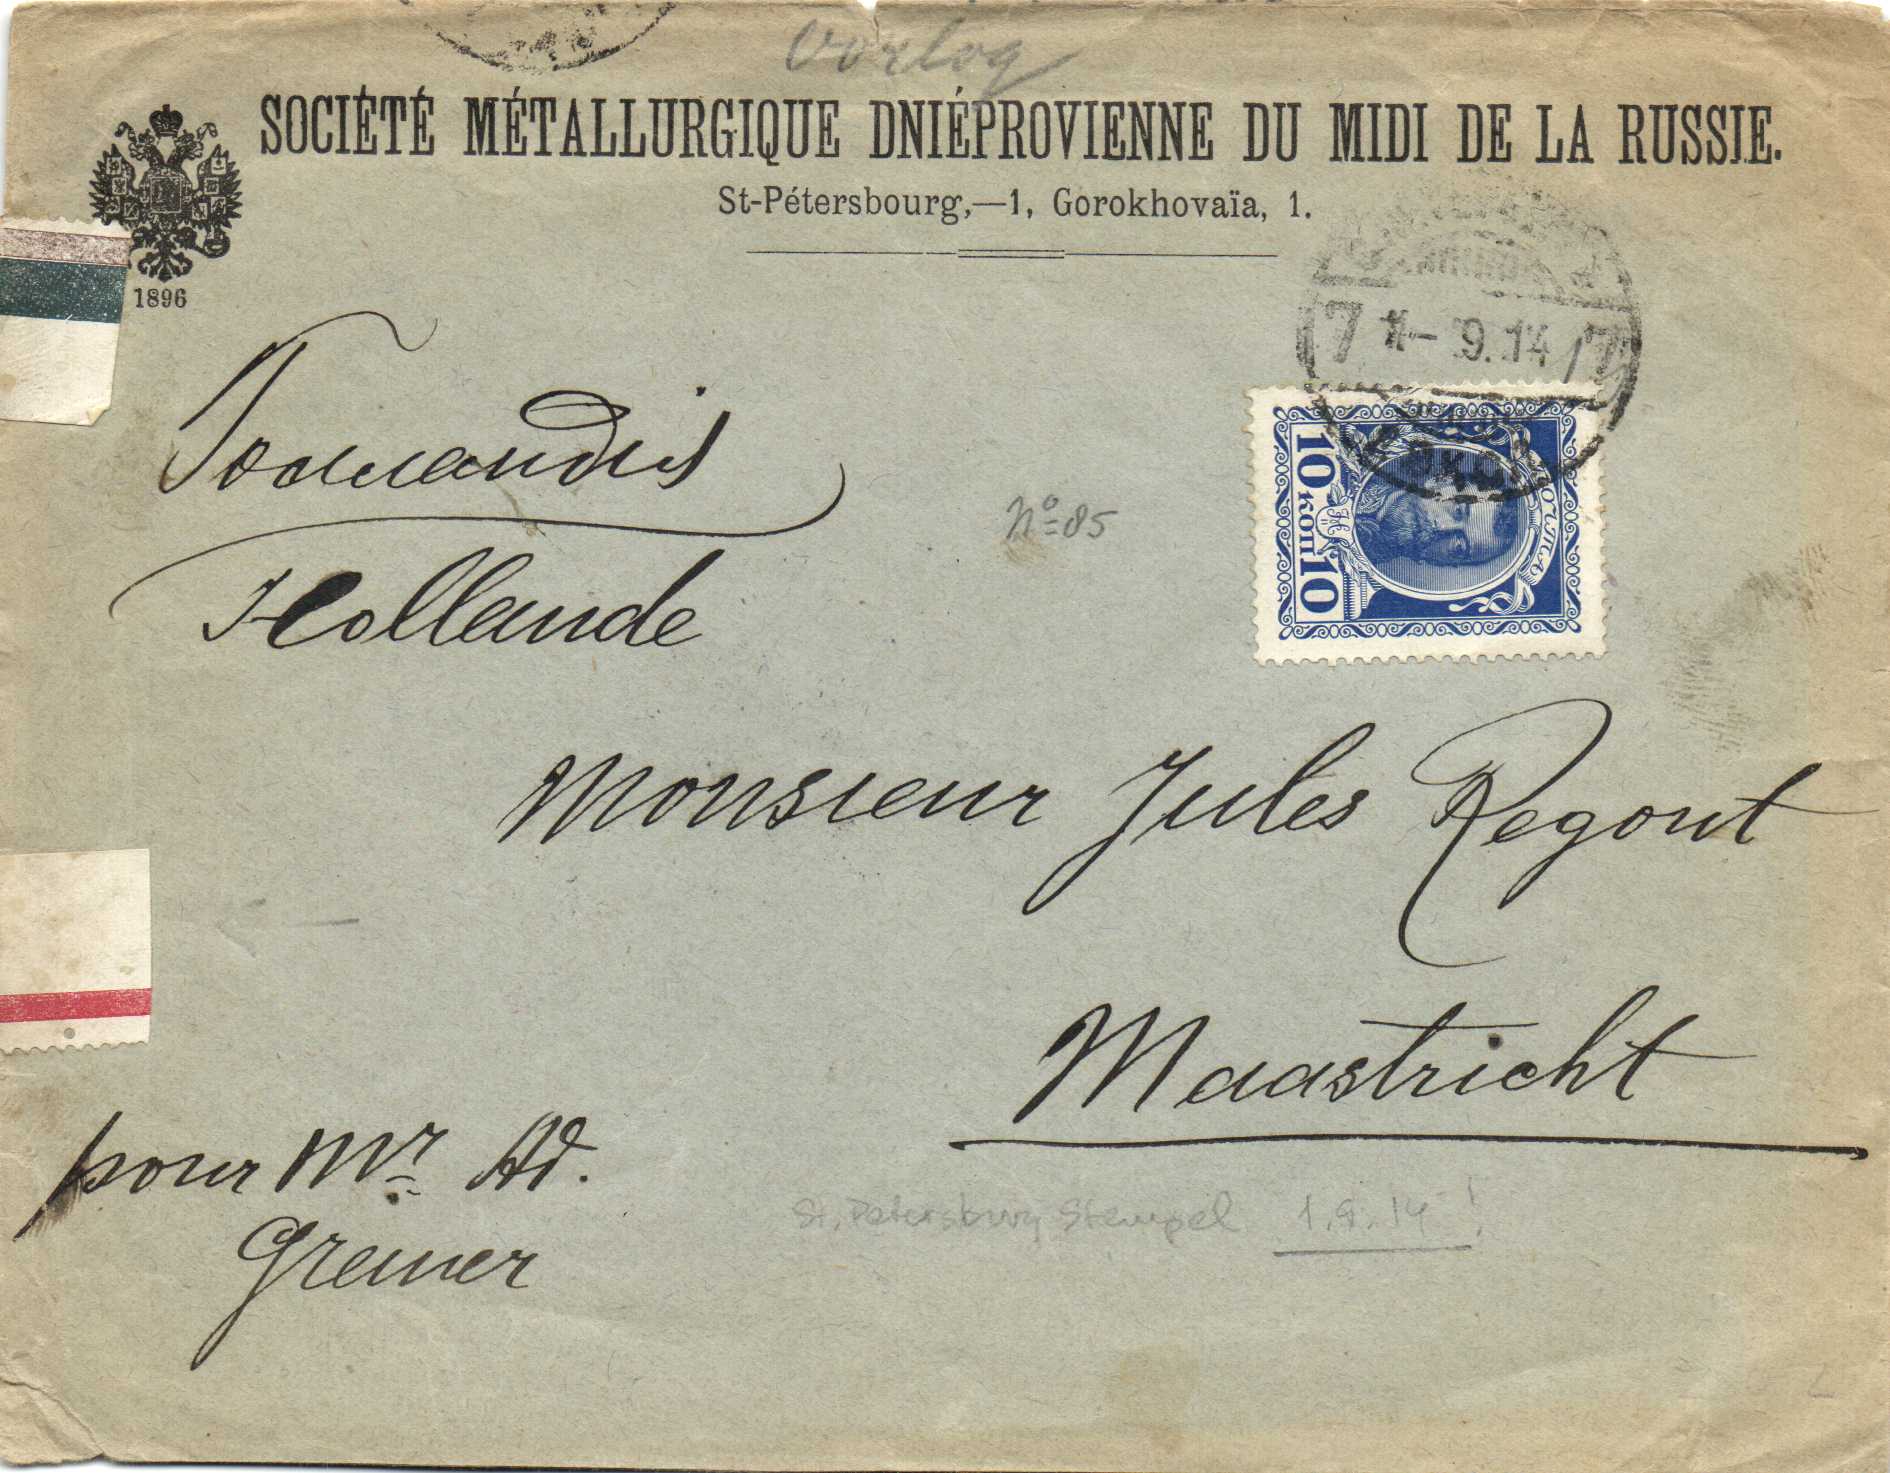 oorlog
SOCIÉTÉ MÉTALLURGIQUE DNIÉPROVIENNE DU MIDI DE LA RUSSIE.
St-Pétersbourg,—1, Gorokhovaïa, 1.
1896
7 1- 9.14 7
10 коп 10
почта
Hollande
No 85
Monsieur Jules Regout
Maastricht
pour Mr Ad.
Greiner
St. Petersburg Stempel 1.9.14!